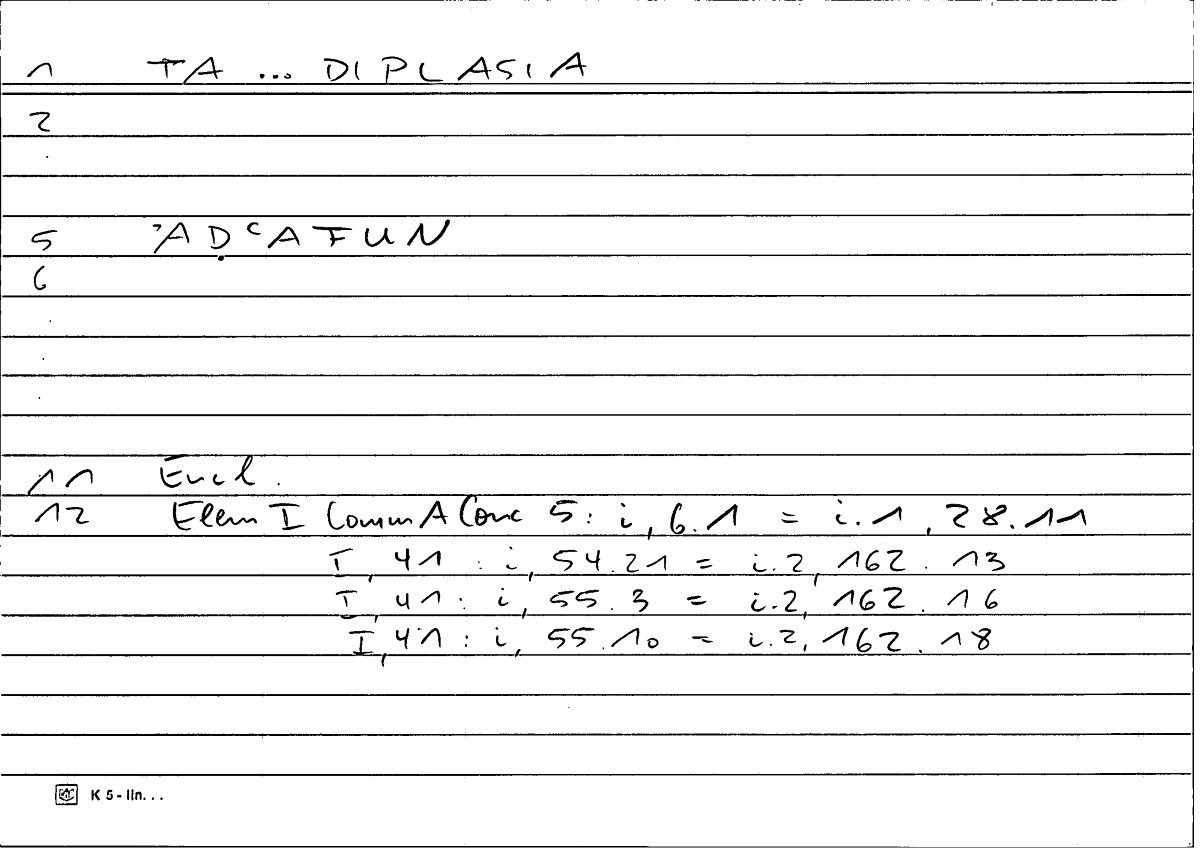 1 TA ... DIPLASIA
2
5 ʾAḌʿAFUN
6
11 Eucl.
12 Elem I Comm A Conc 5: i, 6.1 = i.1, 28.11
I, 41 : i, 54.21 = i.2, 162.13
I, 41: i, 55.3 = i.2, 162.16
I, 41 : i, 55.10 = i.2, 162.18
K 5 - lin. . .